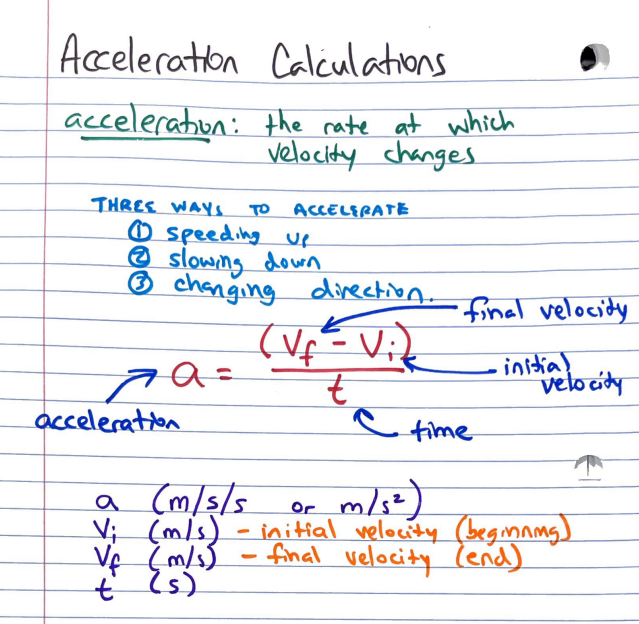 Acceleration Calculations
acceleration: the rate at which
velocity changes
THREE WAYS TO ACCELERATE
① speeding up
② slowing down
③ changing direction.
final velocity
a = (Vf - Vi)
initial
velocity
t
acceleration
time
a (m/s/s or m/s²)
Vi (m/s) - initial velocity (beginning)
Vf (m/s) - final velocity (end)
t (s)